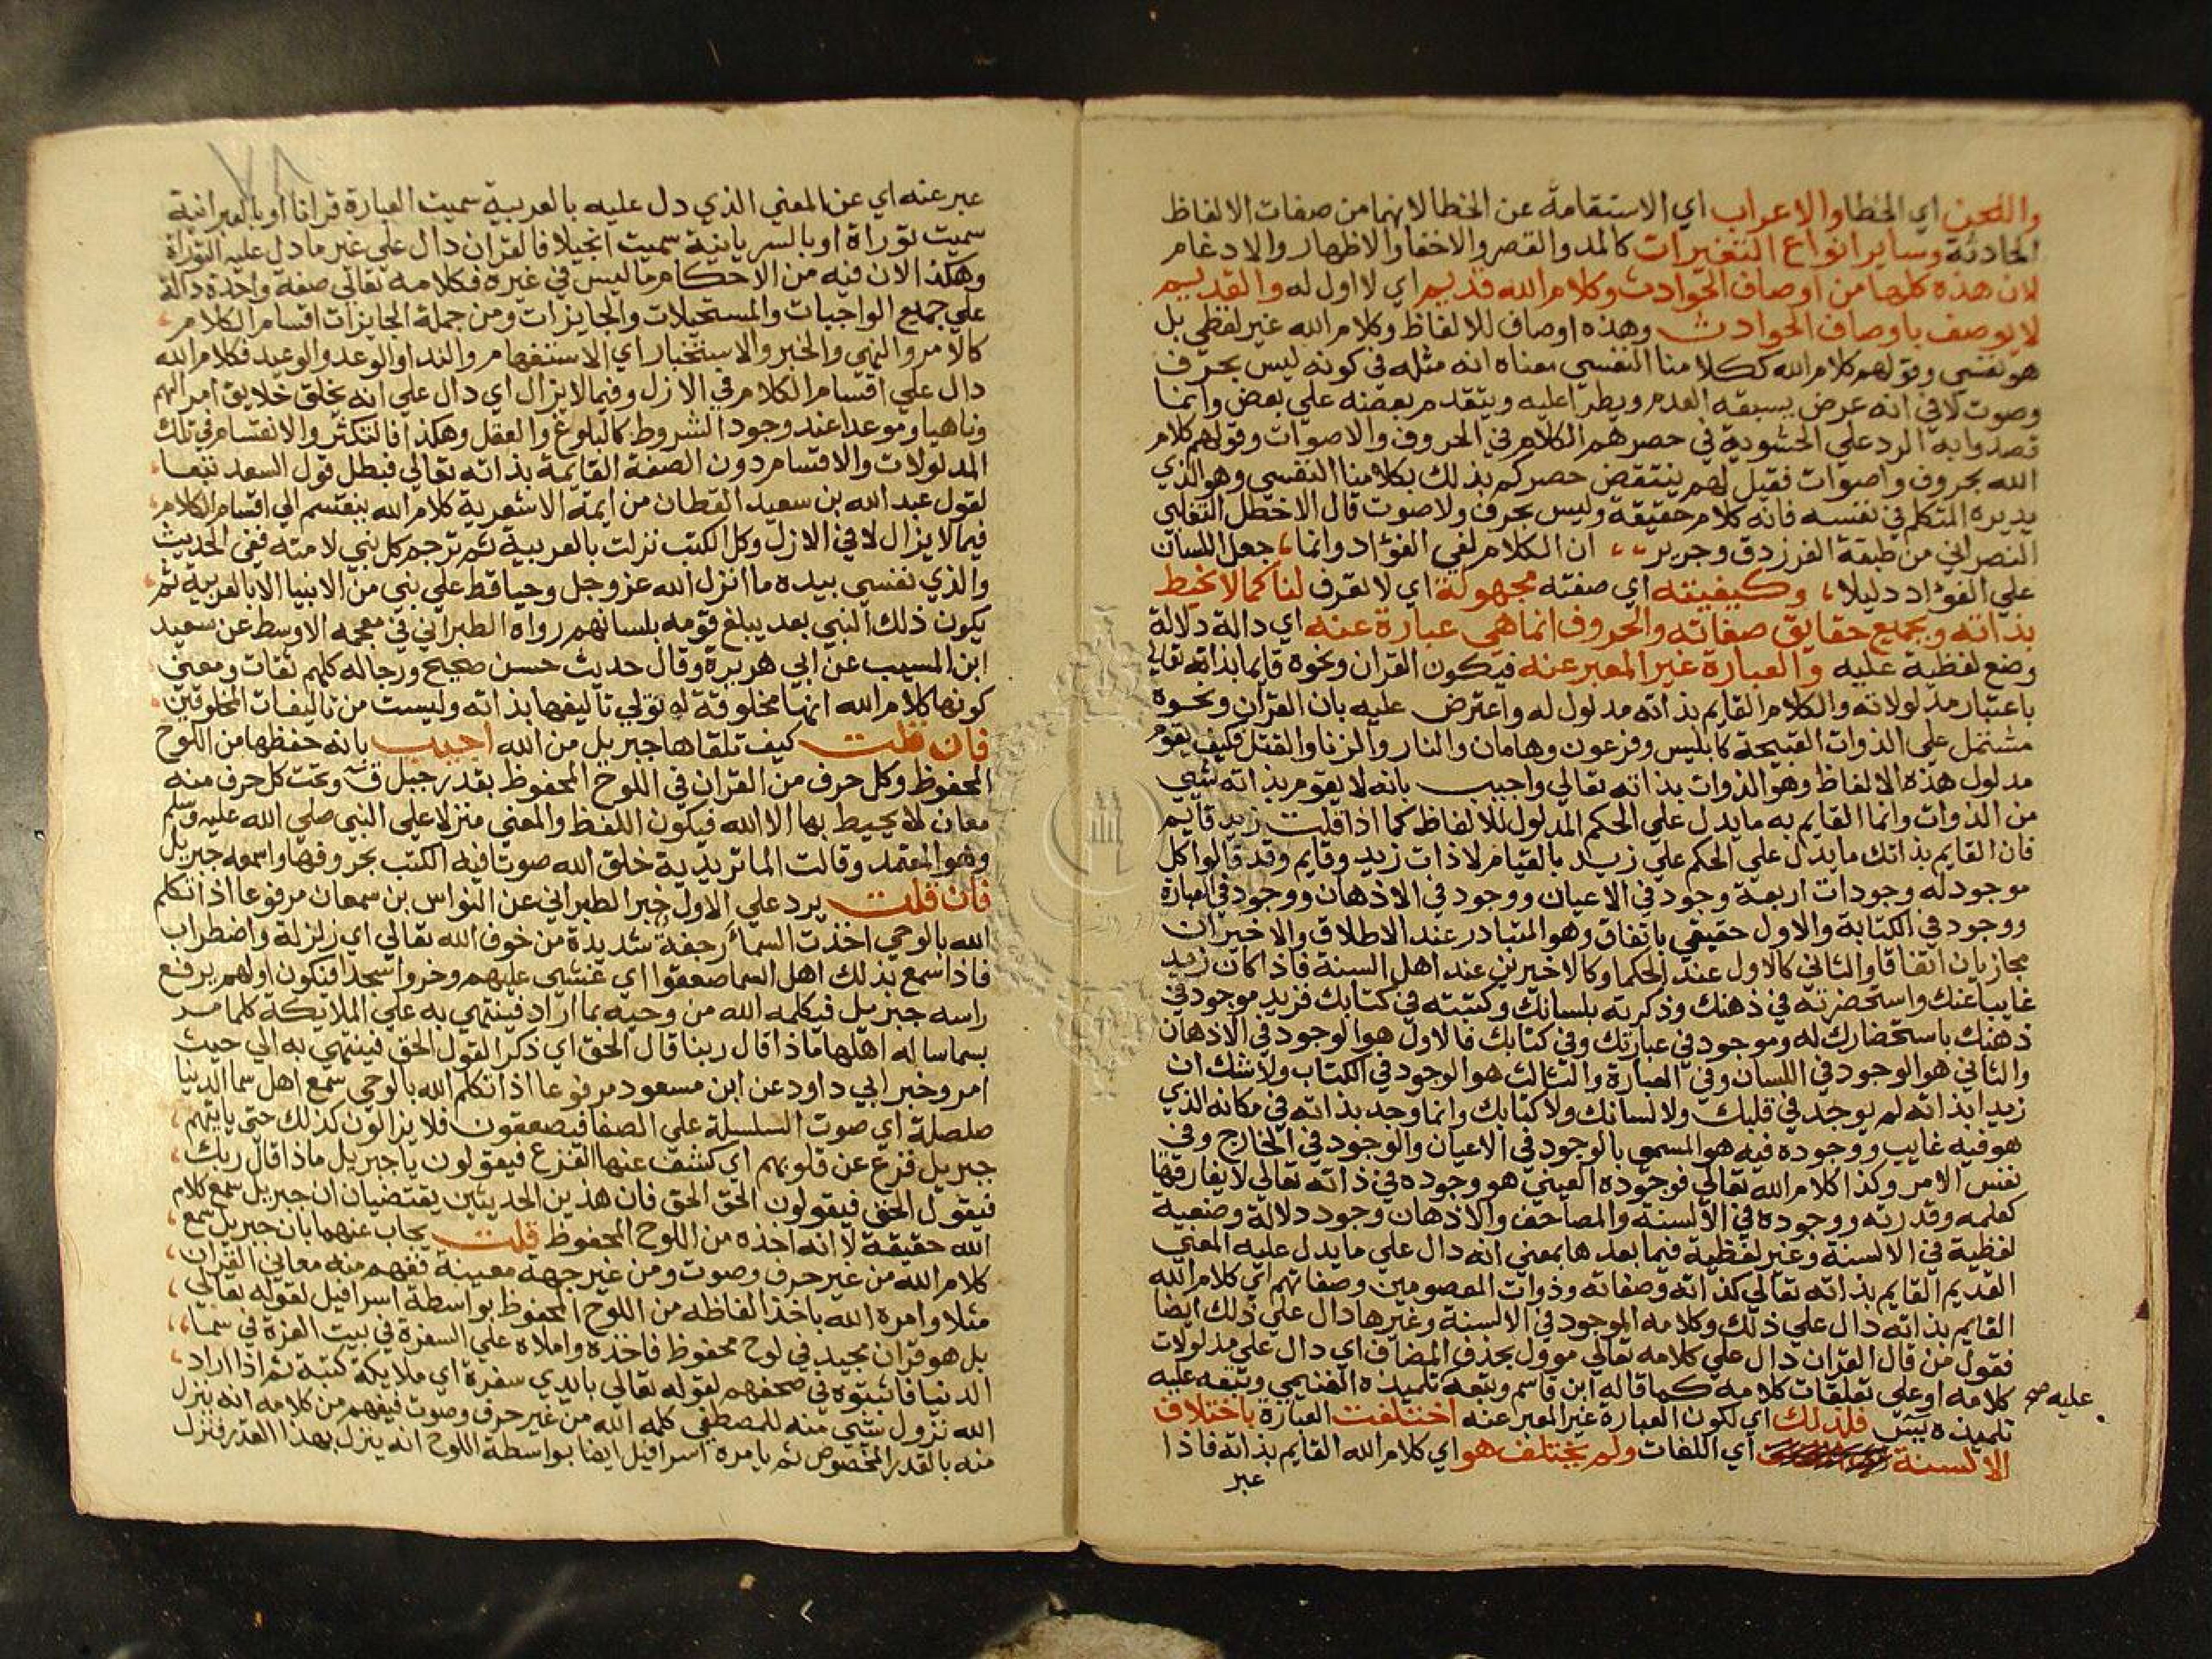 واللحن اي الخطا والاعراب اي الاستقامة عن الخطا لانهما من صفات الالفاظ
الحادثة وساير انواع التغيرات كالمد والقصر والاخفا والاظهار والادغام
لان هذه كلها من اوصاف الحوادث وكلام الله قديم اي لا اول له والقديم
لا يوصف باوصاف الحوادث وهذه اوصاف للالفاظ وكلام الله غير لفظي بل
هو نفسي وقولهم كلام الله ككلامنا النفسي معناه انه مثله في كونه ليس بحرف
وصوت لا في انه عرض يسبقه العدم ويطرا عليه ويتقدم بعضه علي بعض وانما
قصدوا به الرد علي الحشوية في حصرهم الكلام في الحروف والاصوات وقولهم كلام
الله بحروف واصوات فقيل لهم ينتقض حصركم بذلك بكلامنا النفسي وهو الذي
يديره المتكلم في نفسه فانه كلام حقيقة وليس بحرف ولا صوت قال الاخطل التغلبي
النصراني من طبقة الفرزدق وجرير ،، ان الكلام لفي الفؤاد وانما ، جعل اللسان
علي الفؤاد دليلا ، وكيفيته اي صفته مجهولة اي لا تعرف لنا كما لا نحيط
بذاته وبجميع حقايق صفاته والحروف انما هي عبارة عنه اي دالة دلالة
وضع لفظية عليه والعبارة غير المعبر عنه فيكون القران ونحوه قايما بذاته تعالي
باعتبار مدلولاته والكلام القايم بذاته مدلول له واعترض عليه بان القران ونحوه
مشتمل علي الذوات القبيحة كابليس وفرعون وهامان والنار والزنا والقتل فكيف يقوم
مدلول هذه الالفاظ وهو الذوات بذاته تعالي واجيب بانه لا يقوم بذاته شي
من الذوات وانما القايم به ما يدل علي الحكم المدلول للالفاظ كما اذا قلت زيد قايم
فان القايم بذاتك ما يدل علي الحكم علي زيد بالقيام لا ذات زيد وقايم وقد قالوا كل
موجود له وجودات اربعة وجود في الاعيان ووجود في الاذهان ووجود في العبارة
ووجود في الكتابة والاول حقيقي باتفاق وهو المتبادر عند الاطلاق والاخيران
مجازيان اتفاقا والثاني كالاول عند الحكما وكالاخيرين عند اهل السنة فاذا كان زيد
غايبا عنك واستحضرته في ذهنك وذكرته بلسانك وكتبته في كتابك فزيد موجود في
ذهنك باستحضارك له وموجود في عبارتك وفي كتابك فالاول هو الوجود في الاذهان
والثاني هو الوجود في اللسان وفي العبارة والثالث هو الوجود في الكتاب ولا شك ان
زيدا بذاته لم يوجد في قلبك ولا لسانك ولا كتابك وانما وجد بذاته في مكانه الذي
هو فيه غايب ووجوده فيه هو المسمي بالوجود في الاعيان والوجود في الخارج وفي
نفس الامر وكذا كلام الله تعالي فوجوده العيني هو وجوده في ذاته تعالي لا يفارقها
كعلمه وقدرته ووجوده في الالسنة والمصاحف والاذهان وجود دلالة وضعية
لفظية في الالسنة وغير لفظية فيما بعدها بمعني انه دال علي ما يدل عليه المعني
القديم القايم بذاته تعالي كذاته وصفاته وذوات المعصومين وصفاتهم اي كلام الله
القايم بذاته دال علي ذلك وكلامه الموجود في الالسنة وغيرها دال علي ذلك ايضا
فقول من قال القران دال علي كلامه تعالي موول بحذف المضاف اي دال علي مدلولات
كلامه او علي تعلقات كلامه كما قاله ابن قاسم وتبعه تلميذه الغنيمي وتبعه عليه
عليه صح
تلميذه يس فلذلك اي لكون العبارة غير المعبر عنه اختلفت العبارة باختلاف
الالسنة اي اللغات ولم يختلف هو اي كلام الله القايم بذاته فاذا
عبر
٧٨
عبر عنه اي عن المعني الذي دل عليه بالعربية سميت العبارة قرانا او بالعبرانية
سميت توراة او بالسريانية سميت انجيلا فالقران دال علي غير ما دل عليه التوراة
وهكذا لان فيه من الاحكام ما ليس في غيره فكلامه تعالي صفة واحدة دالة
علي جميع الواجبات والمستحيلات والجايزات ومن جملة الجايزات اقسام الكلام ،
كالامر والنهي والخبر والاستخبار اي الاستفهام والندا والوعد والوعيد فكلام الله
دال علي اقسام الكلام في الازل وفيما لا يزال اي دال علي انه يخلق خلايق امرا لهم
وناهيا وموعدا عند وجود الشروط كالبلوغ والعقل وهكذا فالتكثر والانقسام في تلك
المدلولات والاقسام دون الصفة القايمة بذاته تعالي فبطل قول السعد تبعا ،
لقول عبد الله بن سعيد القطان من ايمة الاشعرية كلام الله ينقسم الي اقسام الكلام ،
فيما لا يزال لا في الازل وكل الكتب نزلت بالعربية ثم ترجم كل نبي لامته ففي الحديث
والذي نفسي بيده ما انزل الله عز وجل وحيا قط علي نبي من الانبيا الا بالعربية ثم ،
يكون ذلك النبي بعد يبلغ قومه بلسانهم رواه الطبراني في معجمه الاوسط عن سعيد
ابن المسيب عن ابي هريرة وقال حديث حسن صحيح ورجاله كلهم ثقات ومعني
كونها كلام الله انها مخلوقة له تولي تاليفها بذاته وليست من تاليفات المخلوقين ،
فان قلت كيف تلقاها جبريل من الله اجيب بانه حفظها من اللوح
المحفوظ وكل حرف من القران في اللوح المحفوظ بقدر جبل ق وتحت كل حرف منه
معان لا يحيط بها الا الله فيكون اللفظ والمعني منزلا علي النبي صلي الله عليه وسلم
وهو المعتمد وقالت الماتريدية خلق الله صوتا فيه الكتب بحروفها واسمعه جبريل
فان قلت يرد علي الاول خبر الطبراني عن النواس بن سمعان مرفوعا اذا تكلم
الله بالوحي اخذت السما رجفة شديدة من خوف الله تعالي اي زلزلة واضطراب
فاذا سمع بذلك اهل السما صعقوا اي غشي عليهم وخروا سجدا فيكون اولهم يرفع
راسه جبريل فيكلمه الله من وحيه بما اراد فينتهي به علي الملايكة كلما مر
بسما ساله اهلها ماذا قال ربنا قال الحق اي ذكر القول الحق فينتهي به الي حيث
امر وخبر ابي داود عن ابن مسعود مرفوعا اذا تكلم الله بالوحي سمع اهل سما الدنيا
صلصلة اي صوت السلسلة علي الصفا فيصعقون فلا يزالون كذلك حتي ياتيهم ،
جبريل فزع عن قلوبهم اي كشف عنها الفزع فيقولون يا جبريل ماذا قال ربك ،
فيقول الحق فيقولون الحق الحق فان هذين الحديثين يقتضيان ان جبريل سمع كلام
الله حقيقة لا انه اخذه من اللوح المحفوظ قلت يجاب عنهما بان جبريل سمع ،
كلام الله من غير حرف وصوت ومن غير جهة معينة ففهم منه معاني القران ،
مثلا وامره الله باخذ الفاظه من اللوح المحفوظ بواسطة اسرافيل لقوله تعالي ،
بل هو قران مجيد في لوح محفوظ فاخذه واملاه علي السفرة في بيت العزة في سما ،،
الدنيا فاثبتوه في صحفهم لقوله تعالي بايدي سفرة اي ملايكة كتبة ثم اذا اراد ،
الله نزول شي منه للمصطفي كلمه الله من غير حرف وصوت فيفهم من كلامه انه ينزل
منه بالقدر المخصوص ثم يامره اسرافيل ايضا بواسطة اللوح انه ينزل بهذا القدر فنزل